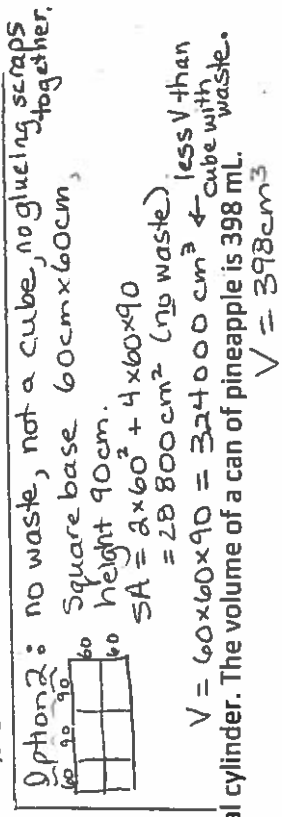 Option 2: no waste, not a cube, no glueing scraps together.
60 90 90
60
60
Square base 60cm x 60cm,
height 90cm.
SA = 2x60² + 4x60x90
= 28 800cm² (no waste)
V = 60x60x90 = 324000 cm³ ← less V than cube with waste.
al cylinder. The volume of a can of pineapple is 398 mL.
V = 398cm³